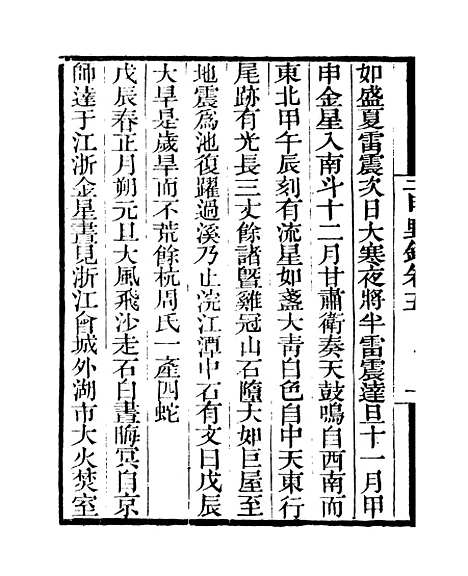 如盛夏雷震次日大寒夜將半雷震達旦十一月甲
申金星入南斗十二月甘肅衛奏天鼓鳴自西南而
東北甲午辰刻有流星如盞大青白色自中天東行
尾跡有光長三丈餘諸暨雞冠山石墮大如巨屋至
地震爲池復躍過溪乃止浣江潭中石有文曰戊辰
大旱是歲旱而不荒餘杭周氏一產四蛇
戊辰春正月朔元旦大風飛沙走石白晝晦冥自京
師達于江浙金星晝見浙江會城外湖市大火焚室
卷五